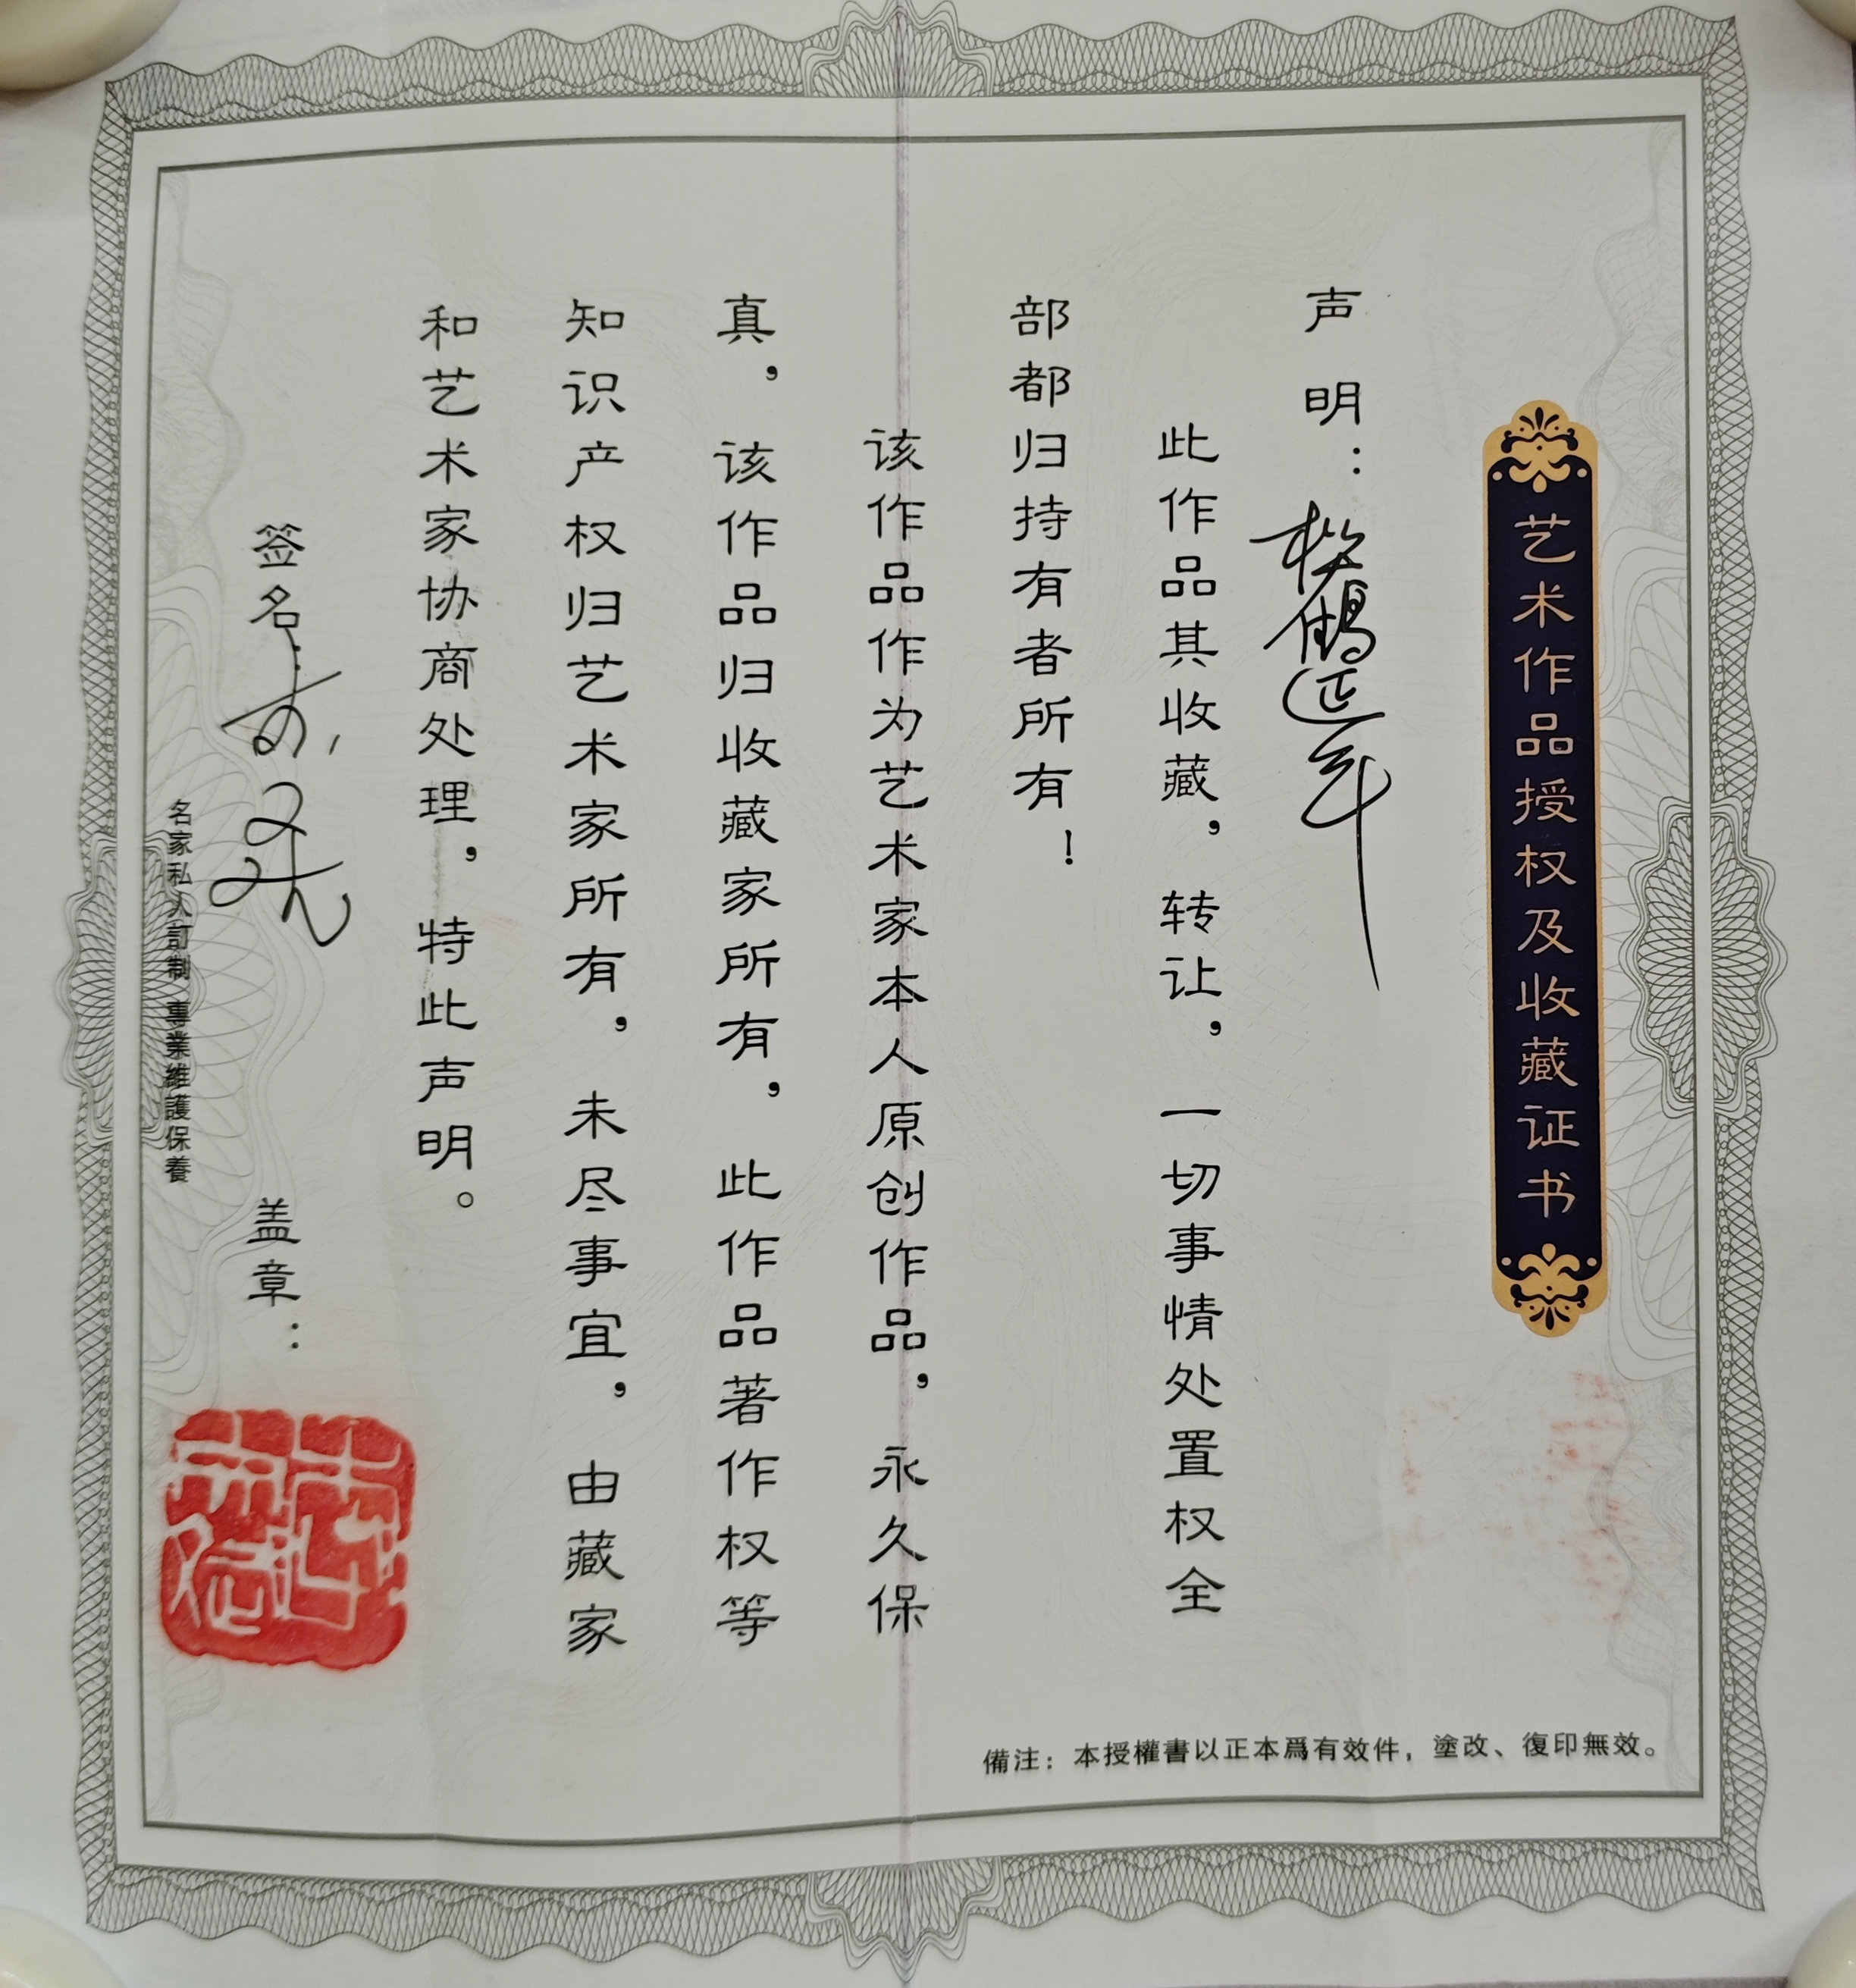 艺术作品授权及收藏证书
声明：松鹤延年
此作品其收藏，转让，一切事情处置权全
部都归持有者所有！
该作品作为艺术家本人原创作品，永久保
真，该作品归收藏家所有，此作品著作权等
知识产权归艺术家所有，未尽事宜，由藏家
和艺术家协商处理，特此声明。
签名：
盖章：
名家私人訂制 專業維護保養
備注：本授權書以正本爲有效件，塗改、復印無效。